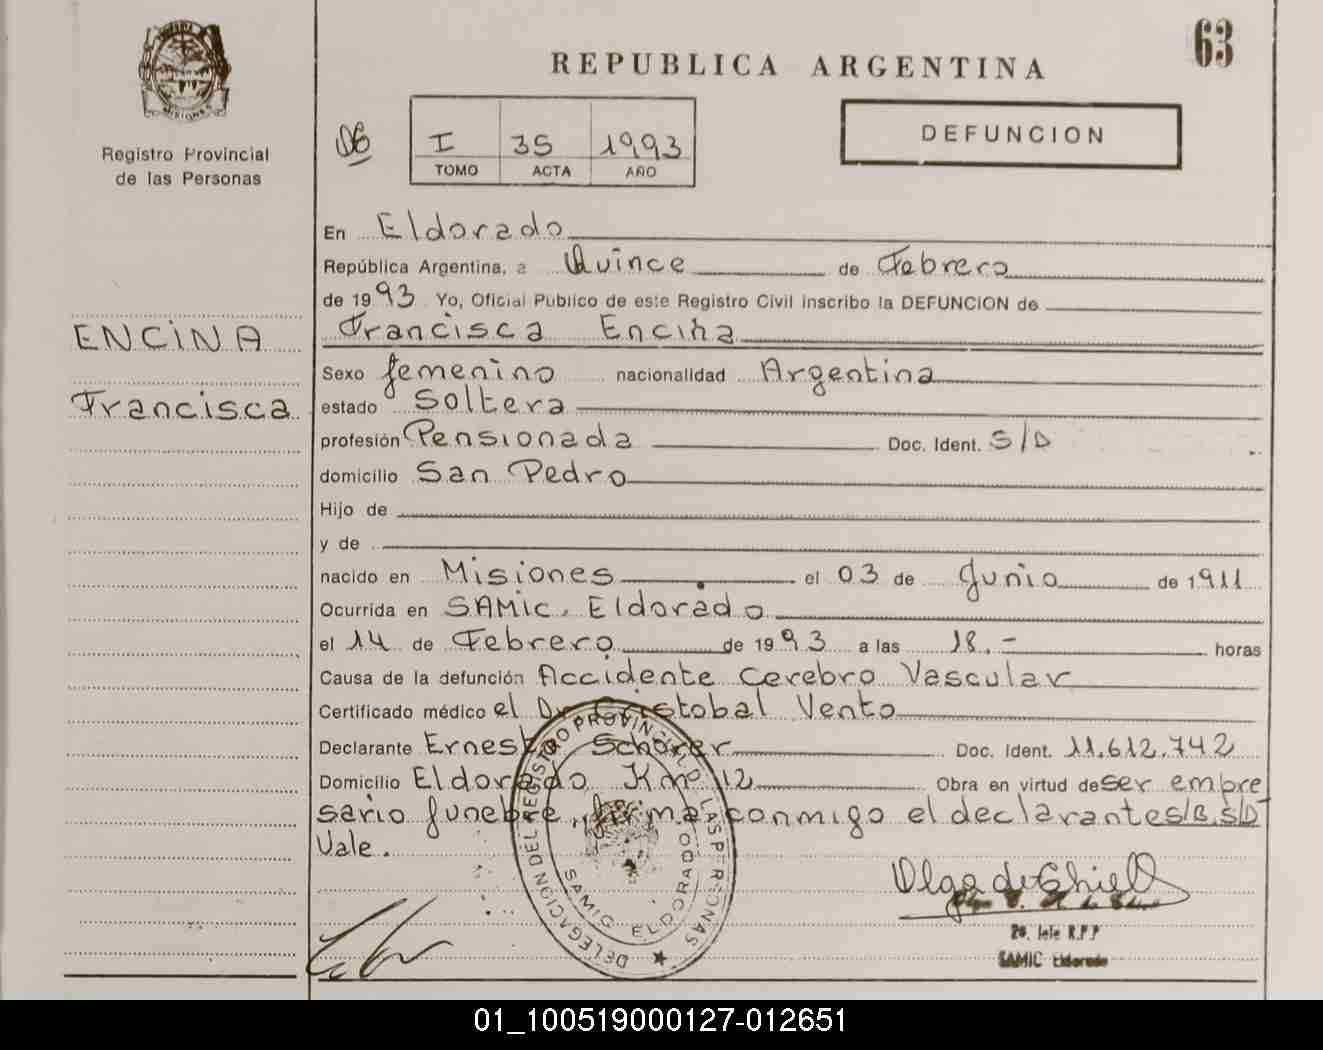 63
REPUBLICA ARGENTINA
MISIONES
Registro Provincial
de las Personas
06
I 35 1993
TOMO ACTA AÑO
DEFUNCION
ENCINA
Francisca
En Eldorado
República Argentina, a Quince de Febrero
de 1993 Yo, Oficial Público de este Registro Civil inscribo la DEFUNCION de
Francisca Encina
Sexo femenino nacionalidad Argentina
estado Soltera
profesión Pensionada Doc. Ident. S/D
domicilio San Pedro
Hijo de
y de
nacido en Misiones el 03 de Junio de 1911
Ocurrida en SAMic. Eldorado
el 14 de Febrero de 1993 a las 18.- horas
Causa de la defunción Accidente Cerebro Vascular
Certificado médico el Dr Cristobal Vento
Declarante Ernesto Schorer Doc. Ident. 11.612.742
Domicilio Eldorado Km 12 Obra en virtud de ser empre
sario funebre, firma conmigo el declarante s/B. s/D
Vale.
DELEGACION DEL REGISTRO PROVINCIAL D LAS PERSONAS
SAMIC ELDORADO
Olga de
2º. Jefe R.P.P
SAMIC Eldorado
01_100519000127-012651